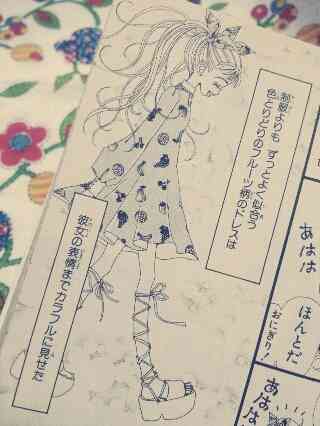 制服よりも ずっとよく似合う
色とりどりのフルーツ柄のドレスは
彼女の表情までカラフルに見せた
あはは
ほんとだ
おにぎり!
あはは